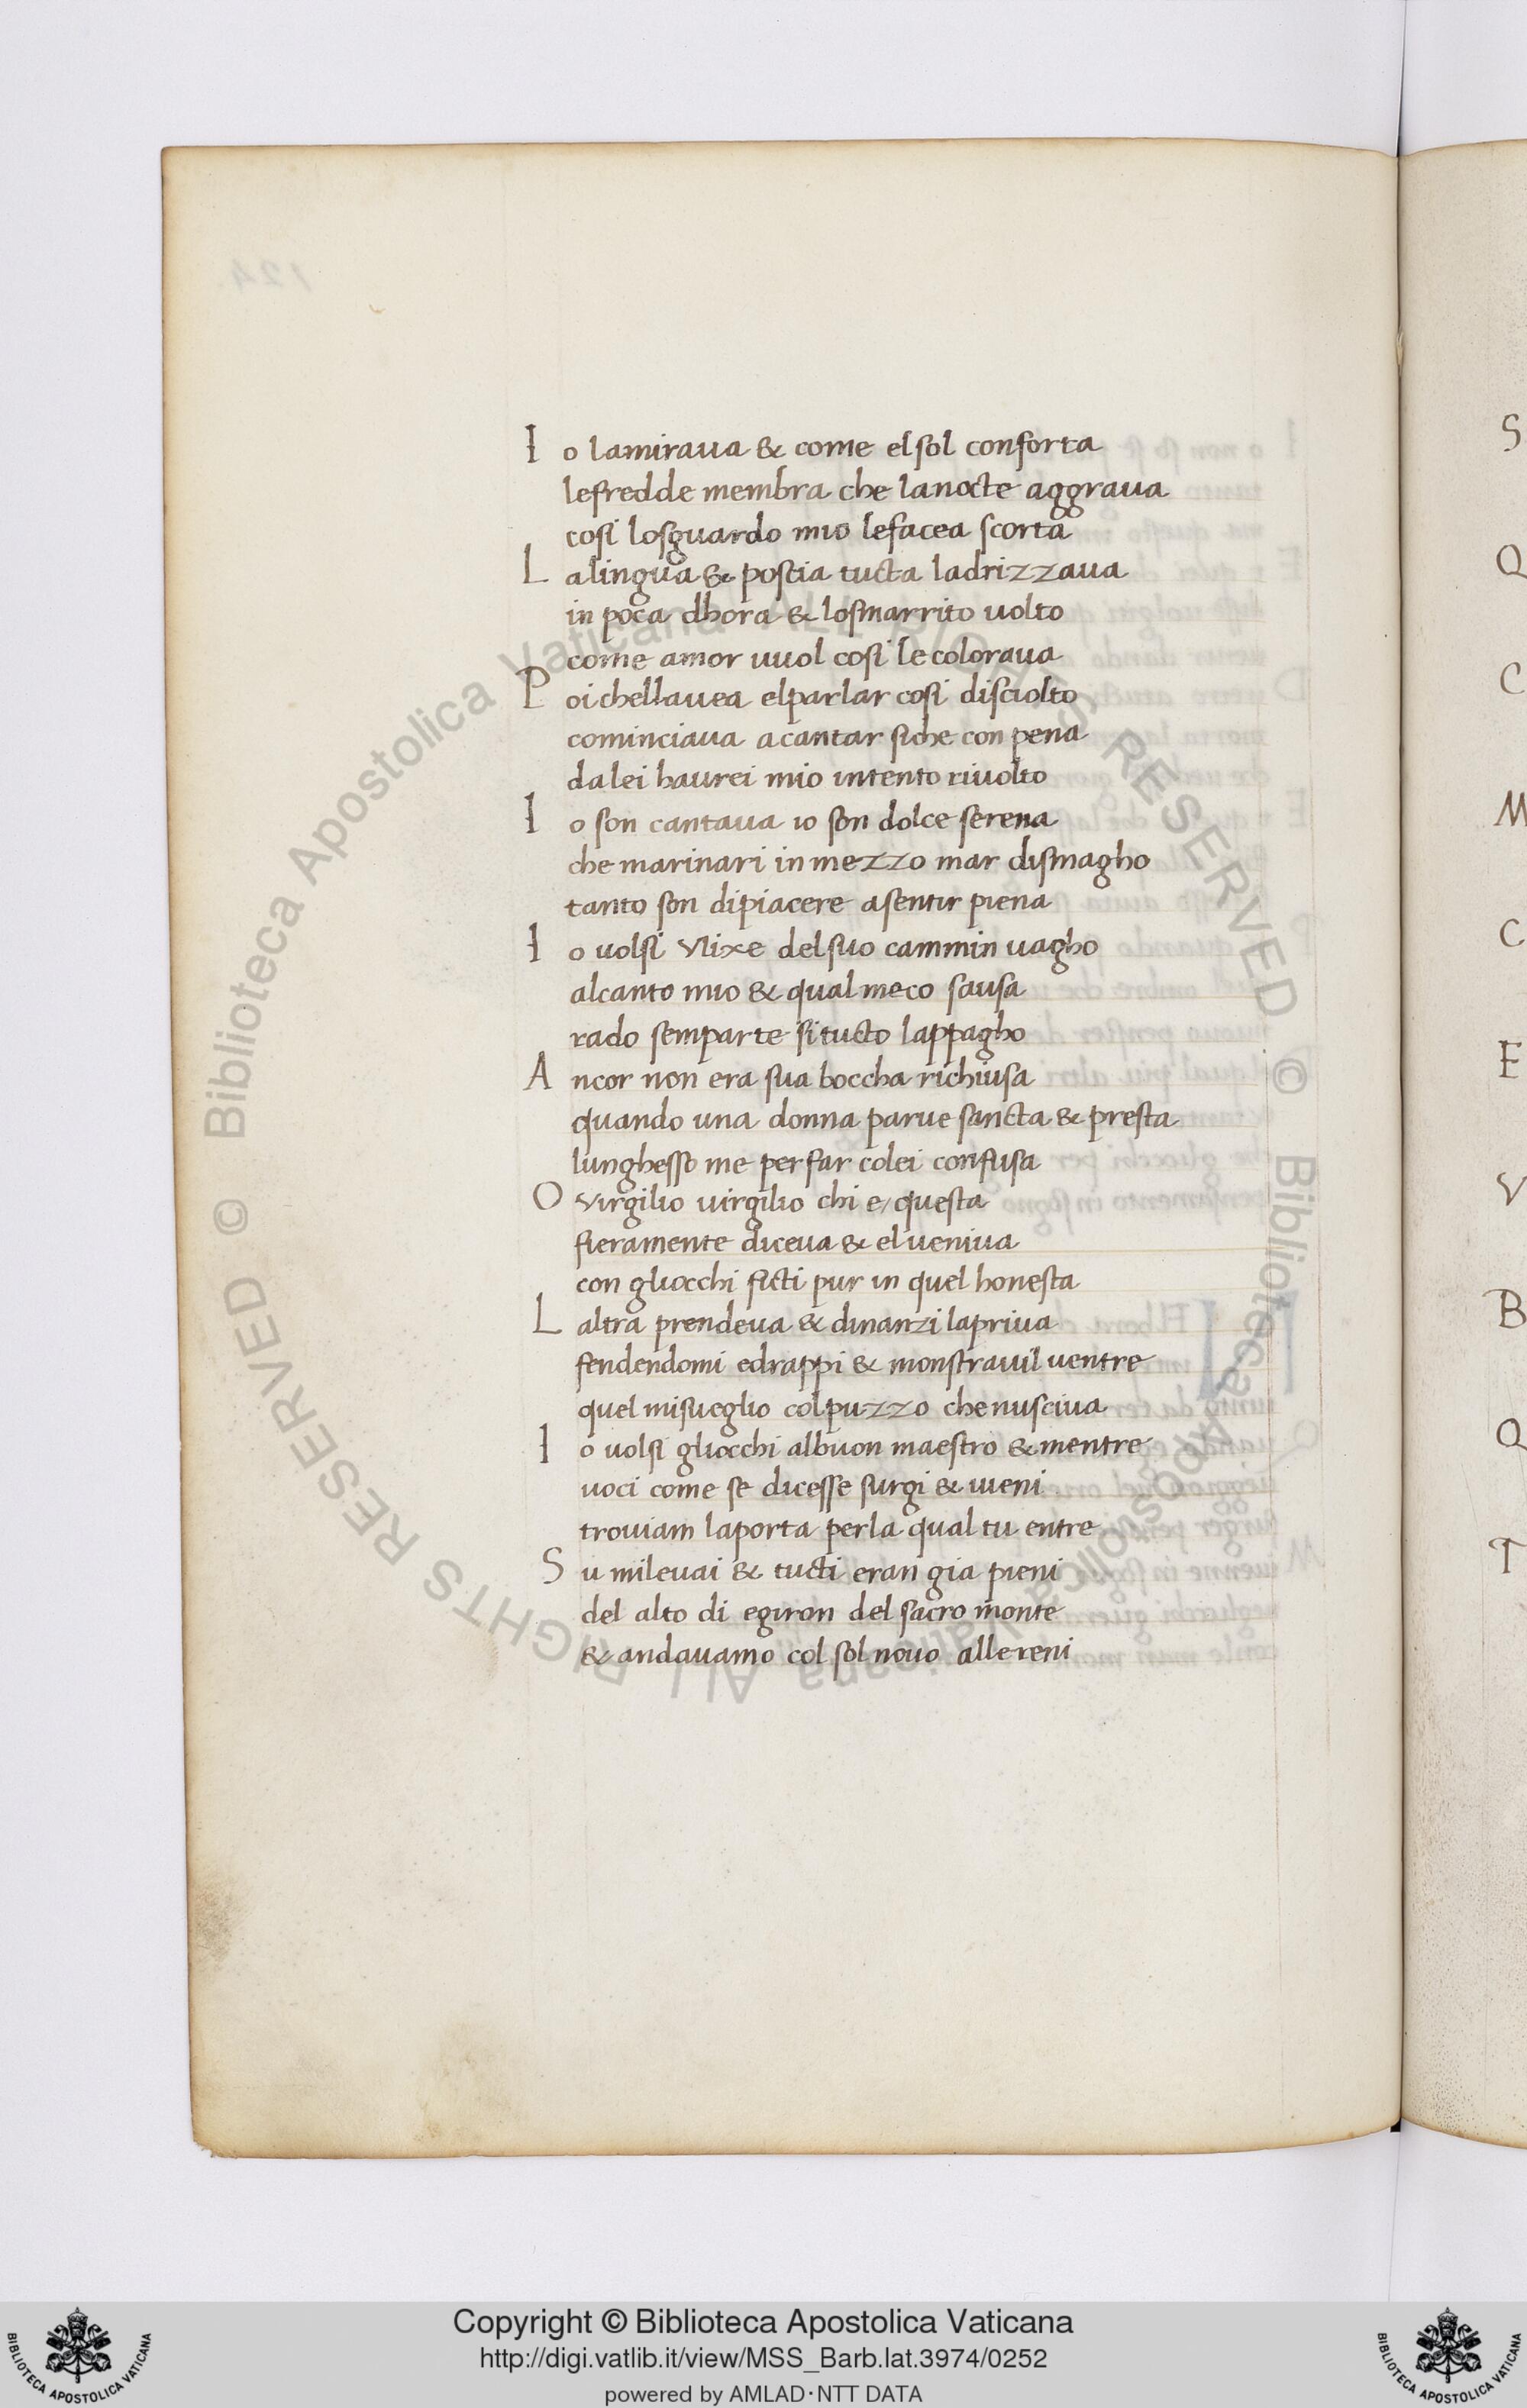 I o lamiraua & come elsol conforta
lefredde membra che lanocte aggraua
cosi losguardo mio lefacea scorta
L alingua & poscia tucta ladrizzaua
in poca dhora & losmarrito uolto
come amor uuol cosi lecoloraua
P oi chellauea elparlar cosi disciolto
cominciaua acantar siche con pena
dalei haurei mio intento riuolto
I o son cantaua io son dolce serena
che marinari in mezzo mar dismagho
tanto son dipiacere asentir piena
I o uolsi Vlixe delsuo cammin uagho
alcanto mio & qual meco sausa
rado semparte si tucto lappagho
A ncor non era sua boccha richiusa
quando una donna parue sancta & presta
lunghesso me perfar colei confusa
O Virgilio uirgilio chi e/ questa
fieramente diceua & el ueniua
con gliocchi ficti pur in quel honesta
L altra prendeua & dinanzi lapriua
fendendomi edrappi & monstrauil uentre
quel misueglio colpuzzo chenusciua
I o uolsi gliocchi albuon maestro & mentre
uoci come se dicesse surgi & uieni
trouiam laporta perla qual tu entre
S u mileuai & tucti eran gia pieni
del alto di egiron del sacro monte
& andauamo col sol nouo allereni
S
Q
C
M
C
E
V
B
Q
T
© Biblioteca Apostolica Vaticana ALL RIGHTS RESERVED © Biblioteca Apostolica Vaticana ALL RIGHTS RESERVED
BIBLIOTECA APOSTOLICA VATICANA
Copyright © Biblioteca Apostolica Vaticana
http://digi.vatlib.it/view/MSS_Barb.lat.3974/0252
powered by AMLAD·NTT DATA
BIBLIOTECA APOSTOLICA VATICANA